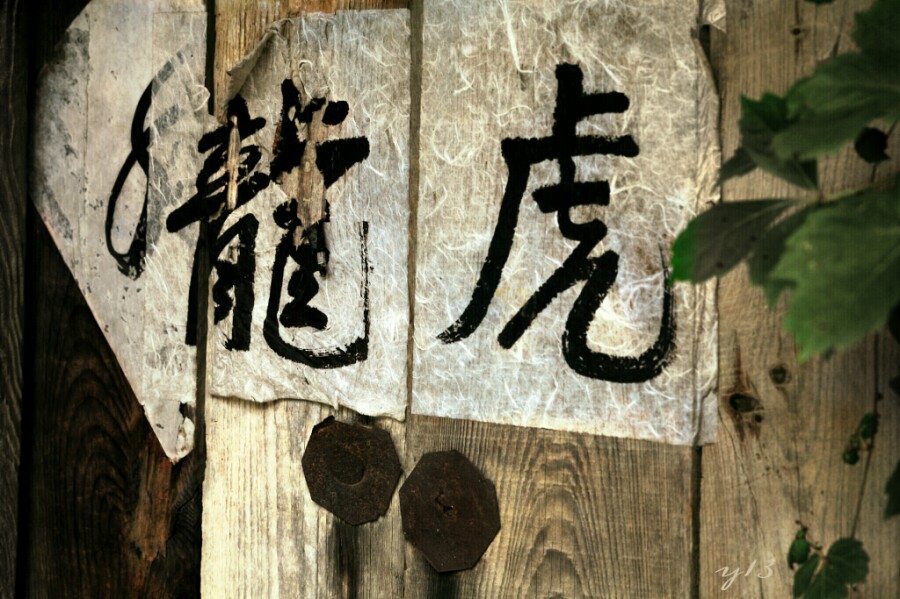 龍
虎
y13